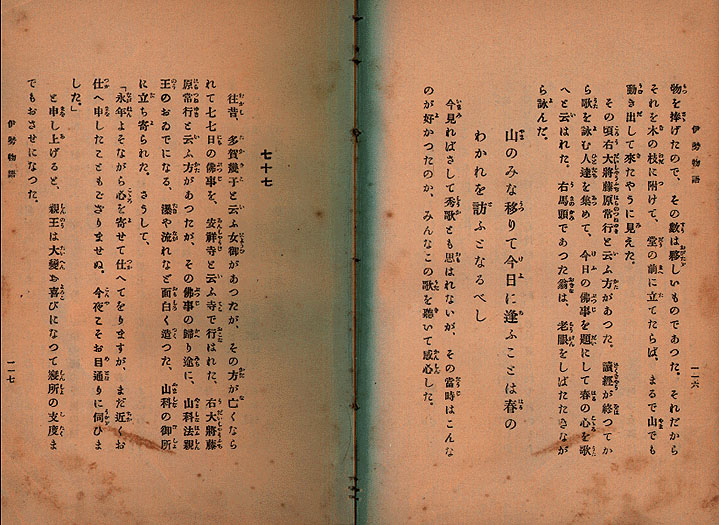 伊勢物語
一一六
物を捧げたので、その數は夥しいものであつた。それだから
それを木の枝に附けて、堂の前に立てたらば、まるで山でも
動き出して來たやうに見えた。
その頃右大將藤原常行と云ふ方があつた。讀經が終つてか
ら歌を詠む人達を集めて、今日の佛事を題にして春の心を歌
へと云はれた。右馬頭であつた翁は、老眼をしばたたきなが
ら詠んだ。
山のみな移りて今日に逢ふことは春の
わかれを訪ふとなるべし
今見ればさして秀歌とも思はれないが、その當時はこんな
のが好かつたのか、みんなこの歌を聽いて感心した。
七十七
往昔、多賀幾子と云ふ女御があつたが、その方が亡くなら
れて七七日の佛事を、安祥寺と云ふ寺で行はれた。右大將藤
原常行と云ふ方があつたが、その佛事の歸り途に、山科法親
王のおゐでになる、瀑や流れなど面白く造つた、山科の御所
に立ち寄られた。さうして、
「永年よそながら心を寄せて仕へてをりますが、まだ近くお
仕へ申したこともござりませぬ。今夜こそお目通りに伺ひま
した。」
と申し上げると、親王は大變お喜びになつて寢所の支度ま
でもおさせになつた。
伊勢物語
一一七